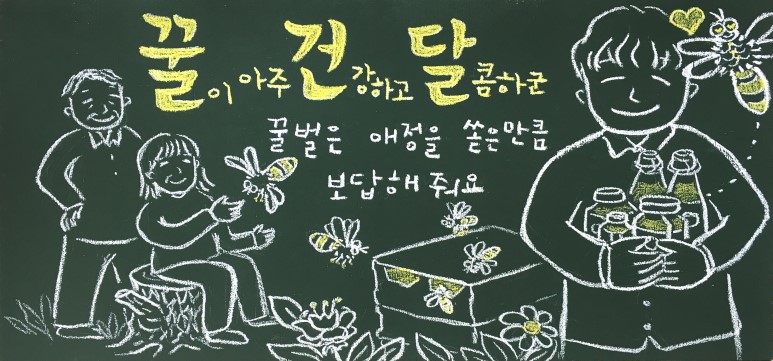 꿀이 아주 건강하고 달콤하군
꿀벌은 애정을 쏟은만큼
보답해 줘요